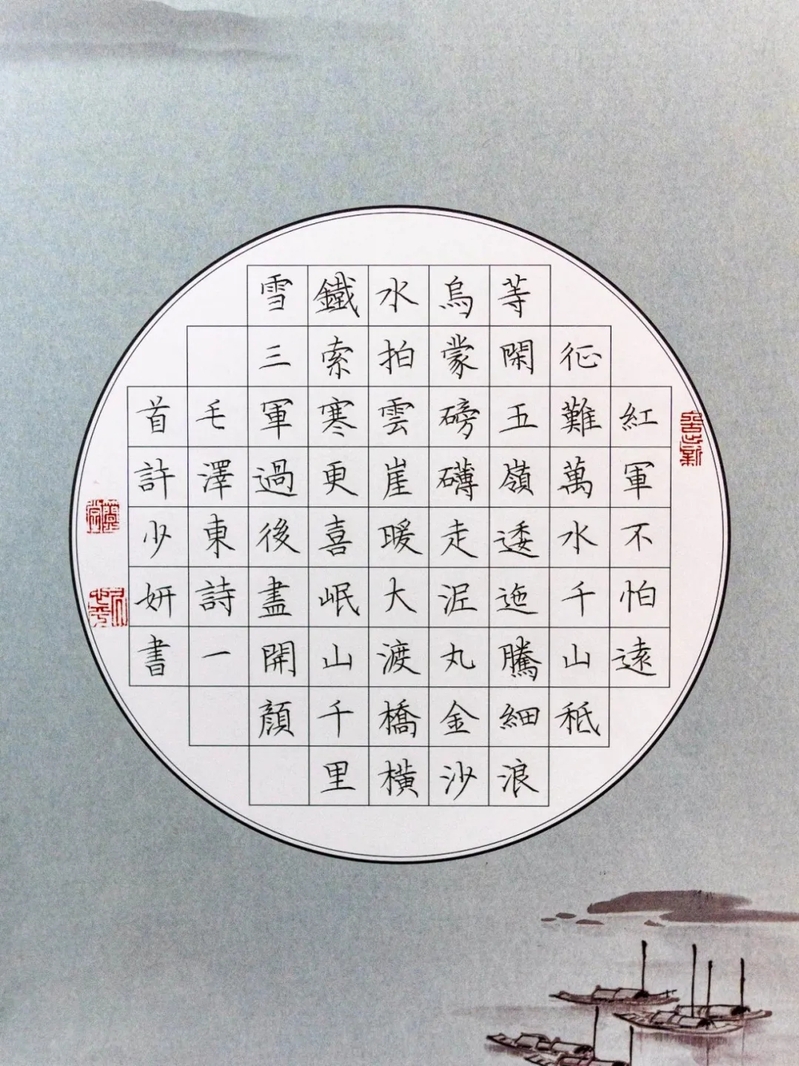 紅軍不怕遠
征難萬水千山秪
等閑五嶺逶迤騰細浪
烏蒙磅礴走泥丸金沙
水拍雲崖暖大渡橋橫
鐵索寒更喜岷山千里
雪三軍過後盡開顏
毛澤東詩一
首許少妍書